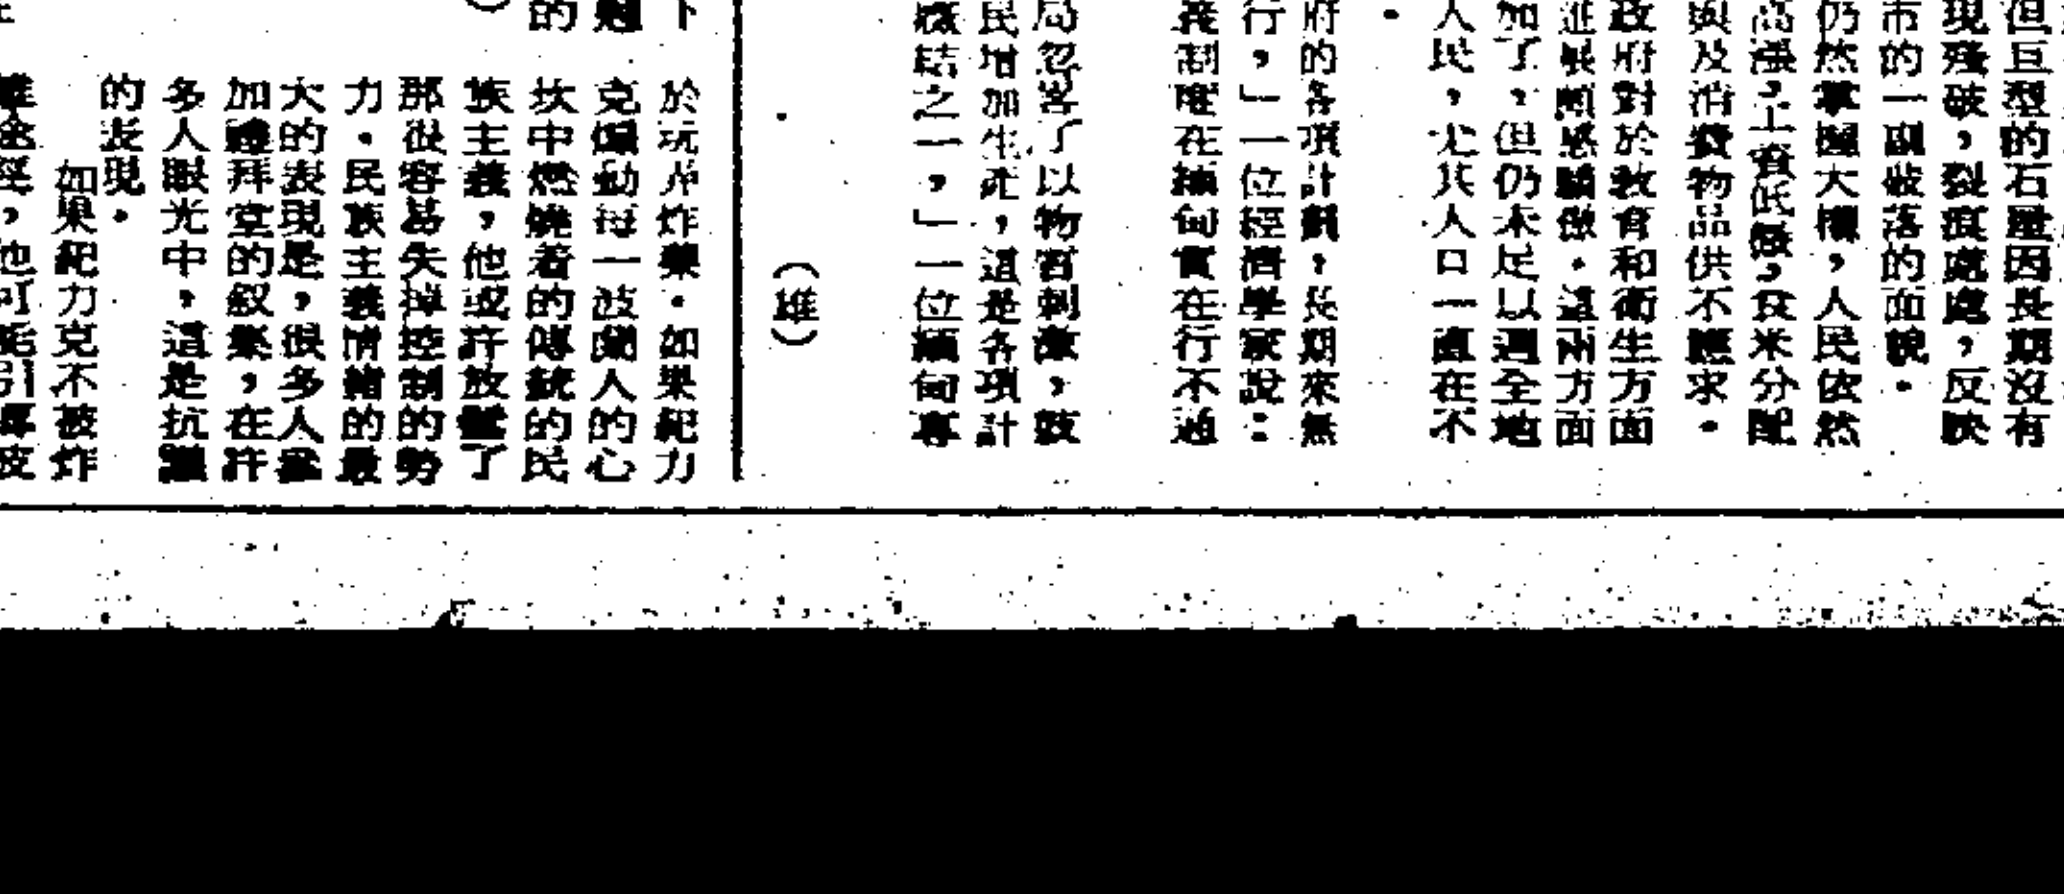 但巨型的石壁因長期沒有
現殘破，裂痕處處，反映
市的一副破落的面貌。
仍然掌握大權，人民依然
高漲，工資低微，食米分配
與及消費物品供不應求。
政府對於教育和衛生方面
進展頗感驕傲。這兩方面
加了，但仍未足以遍全地
人民，尤其人口一直在不
。
府的各項計劃，長期來無
行，」一位經濟學家說：
義制度在緬甸實在行不通
局忽畧了以物質刺激，鼓
民增加生產，這是各項計
癥結之一，」一位緬甸專
（雄）
下
於玩弄炸藥。如果紀力
克煽動每一波蘭人的心
的
坎中燃燒着的傳統的民
族主義，他或許放鬆了
那很容易失掉控制的勢
力。民族主義情緒的最
大的表現是，很多人參
加禮拜堂的叙集，在許
多人眼光中，這是抗議
的表現。
如果紀力克不被炸